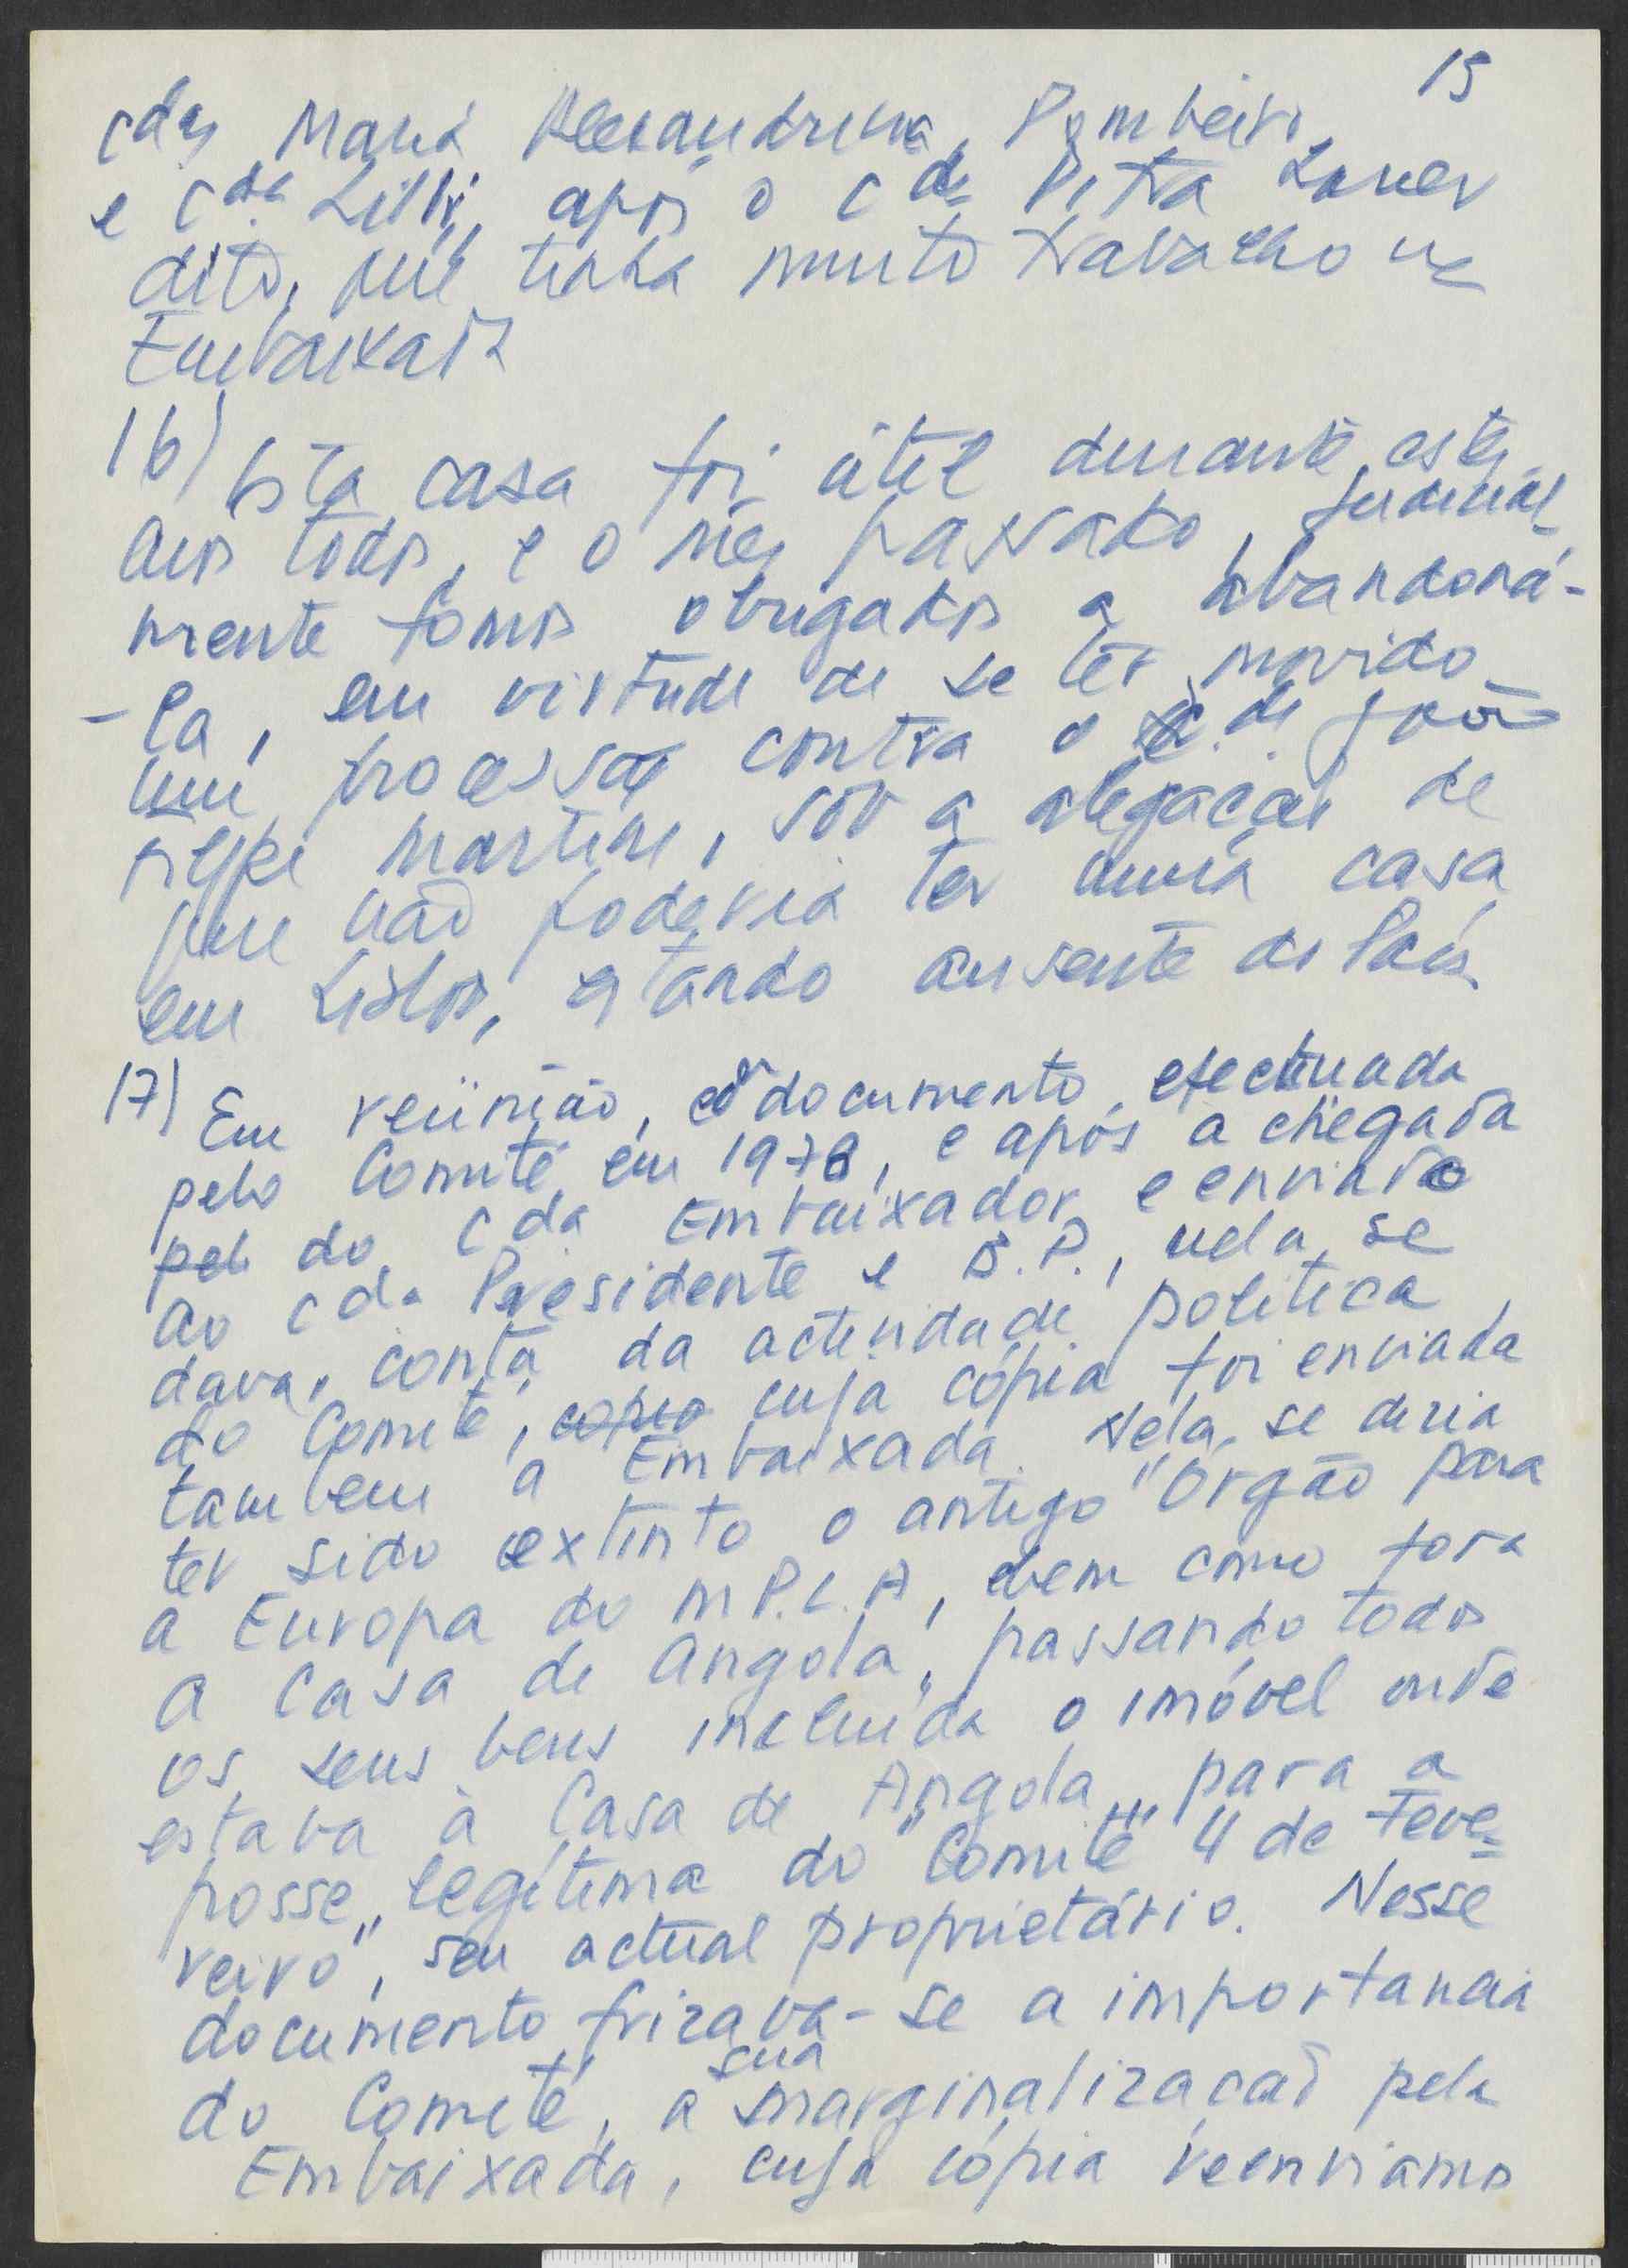 15
cdas Maria Alexandrina, Pombeiro,
e cda Lilli, após o cda Petra Laner
dito, que tinha muito trabalho na
Embaixada
16) Esta casa foi útil durante estes
anos todos, e o mês passado, judicial-
mente fomos obrigados a abandoná-
-la, em virtude de se ter movido
um processo contra o c. de João
Filipe Martins, sob a alegação de
que não poderia ter uma casa
em Lisboa, estando ausente do País.
17) Em reünião, e documento, efectuada
pelo Comité em 1978, e após a chegada
pel do cda Embaixador, e enviado
ao cda Presidente e B.P., nela, se
dava, conta da actividade politica,
do Comité, copia cuja cópia foi enviada
tambem à Embaixada. Nela, se dizia
ter sido extinto o antigo "Orgão para
a Europa do M.P.L.A, bem como fora
a Casa de Angola", passando todos
os seus bens incluida o imóvel onde
estava à Casa de Angola, para a
posse "legitima do "Comité" 4 de Feve-
reiro", seu actual proprietário. Nesse
documento frizava-se a importancia
do Comité, a sua marginalização pela
Embaixada, cuja cópia reenviamos